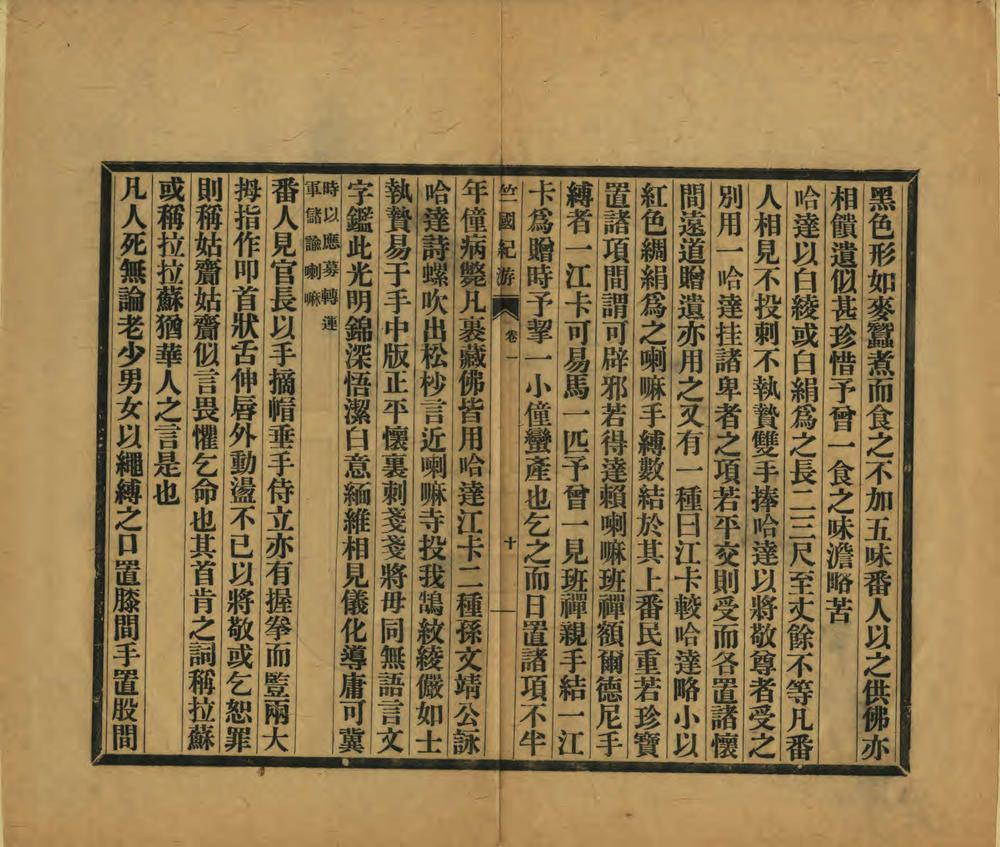 黑色形如麥蠶煮而食之不加五味番人以之供佛亦
相饋遺似甚珍惜予曾一食之味澹略苦
哈達以白綾或白絹爲之長二三尺至丈餘不等凡番
人相見不投刺不執贄雙手捧哈達以將敬尊者受之
別用一哈達挂諸卑者之項若平交則受而各置諸懷
間遠道贈遺亦用之又有一種曰江卡較哈達略小以
紅色綢絹爲之喇嘛手縛數結於其上番民重若珍寶
置諸項間謂可辟邪若得達賴喇嘛班禪額爾德尼手
縛者一江卡可易馬一匹予曾一見班禪親手結一江
卡爲贈時予挈一小僮蠻產也乞之而日置諸項不半
竺國紀游 卷一 十
年僮病斃凡裹藏佛皆用哈達江卡二種孫文靖公詠
哈達詩螺吹出松杪言近喇嘛寺投我鵠紋綾儼如士
執贄易于手中版正平懷裏刺戔戔將毋同無語言文
字鑑此光明錦深悟潔白意緬維相見儀化導庸可冀
時以應募轉運
軍儲諭喇嘛
番人見官長以手摘帽垂手侍立亦有握拳而豎兩大
拇指作叩首狀舌伸唇外動盪不已以將敬或乞恕罪
則稱姑齋姑齋似言畏懼乞命也其首肯之詞稱拉蘇
或稱拉拉蘇猶華人之言是也
凡人死無論老少男女以繩縛之口置膝間手置股間